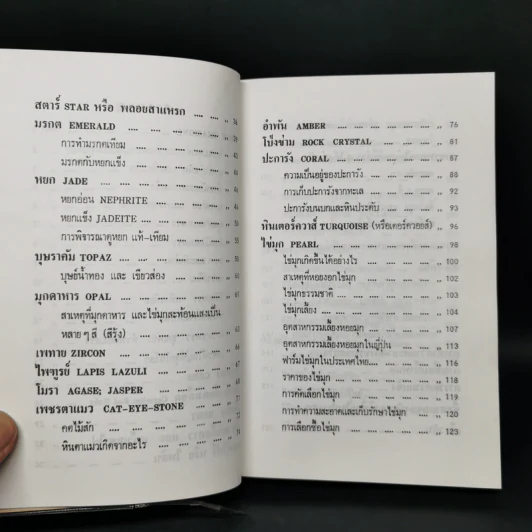 สตาร์ STAR หรือ พลอยสาแหรก .... .... ,, 34
มรกต EMERALD .... .... .... .... ,, 39
การทำมรกตเทียม .... .... .... .... ,, 42
มรกตกับหยกแข็ง .... .... .... .... ,, 44
หยก JADE .... .... .... .... .... ,,
หยกอ่อน NEPHRITE .... .... .... ,,
หยกแข็ง JADEITE .... .... .... ,,
การพิจารณาดูหยก แท้-เทียม .... .... ,,
บุษราคัม TOPAZ .... .... .... .... ,,
บุษย์น้ำทอง และ เขียวส่อง .... .... ,,
มุกดาหาร OPAL .... .... .... .... ,,
สาเหตุที่มุกดาหาร และไข่มุกสะท้อนแสงเป็น
หลายๆสี (สีรุ้ง) .... .... .... .... ,,
เพทาย ZIRCON .... .... .... .... ,,
ไพฑูรย์ LAPIS LAZULI .... .... .... ,,
โมรา AGASE; JASPER .... .... .... ,,
เพชรตาแมว CAT-EYE-STONE .... .... ,,
คดไม้สัก .... .... .... .... .... ,,
หินตาแมวเกิดจากอะไร .... .... .... ,,
อำพัน AMBER .... .... .... .... .... ,, 76
โป่งข่าม ROCK CRYSTAL .... .... .... ,, 81
ปะการัง CORAL .... .... .... .... .... ,, 87
ความเป็นอยู่ของปะการัง .... .... .... ,, 88
การเก็บปะการังจากทะเล .... .... .... ,, 92
ปะการังบนบกและหินประดับ .... .... .... ,, 93
ทินเตอร์ควาส์ TURQUOISE (หรือเตอร์ควอยส์) ,, 96
ไข่มุก PEARL .... .... .... .... .... ,, 98
ไข่มุกเกิดขึ้นได้อย่างไร .... .... .... ,, 100
สาเหตุที่หอยงอกไข่มุก .... .... .... ,, 102
ไข่มุกธรรมชาติ .... .... .... .... ,, 103
ไข่มุกเลี้ยง .... .... .... .... .... ,, 104
อุตสาหกรรมเลี้ยงหอยมุก .... .... .... ,, 107
อุตสาหกรรมเลี้ยงหอยมุกในญี่ปุ่น .... .... ,, 113
ฟาร์มไข่มุกในประเทศไทย.... .... .... ,, 116
ราคาของไข่มุก .... .... .... .... ,, 118
การคัดเลือกไข่มุก .... .... .... .... ,, 119
การทำความสะอาดและเก็บรักษาไข่มุก .... ,, 120
การเลือกซื้อไข่มุก .... .... .... .... ,, 123